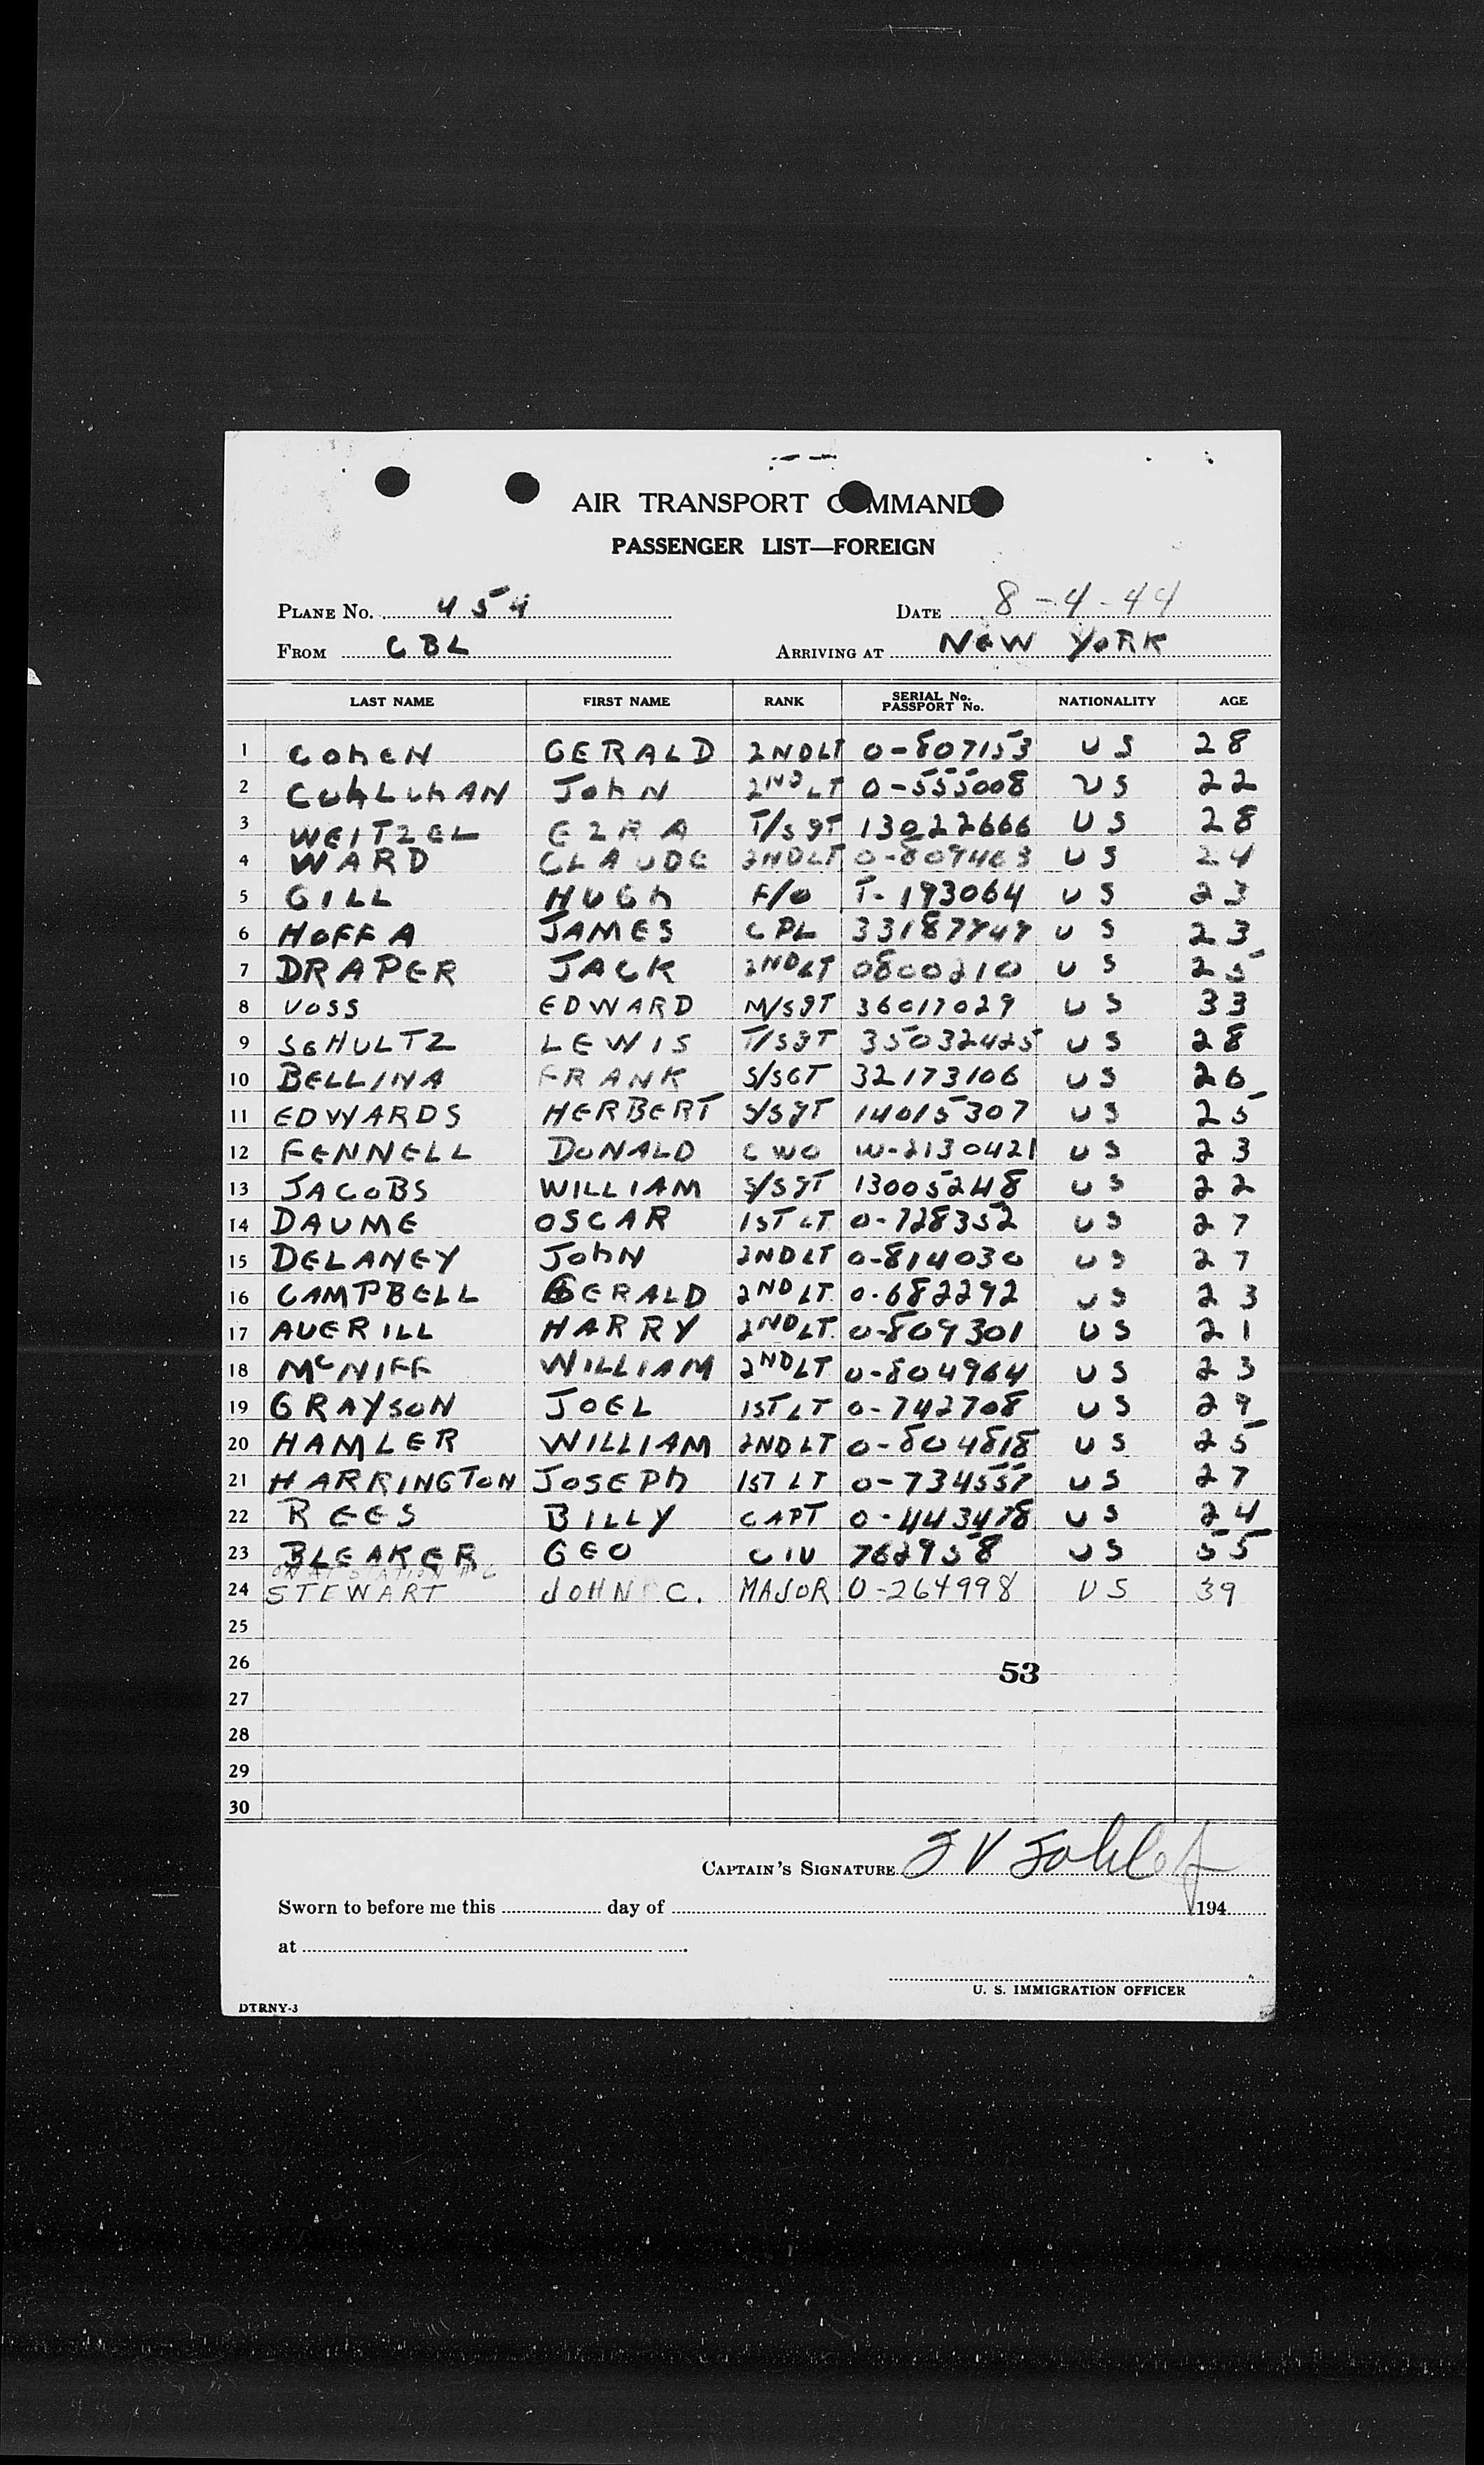 AIR TRANSPORT COMMAND
PASSENGER LIST—FOREIGN
PLANE NO. 454 DATE 8-4-44
FROM CBL ARRIVING AT NEW YORK
LAST NAME FIRST NAME RANK SERIAL No. PASSPORT No. NATIONALITY AGE
1 COHEN GERALD 2ND LT 0-807153 US 28
2 JOHN 2ND LT 0-555008 US 22
3 WEITZEL EZRA T/SGT 13022666 US 28
4 WARD CLAUDE 2ND LT US 24
5 GILL HUGH F/O T-193064 US 23
6 HOFFA JAMES CPL US 23
7 DRAPER JACK 2ND LT 0800210 US 25
8 VOSS EDWARD M/SGT 36017029 US 33
9 SCHULTZ LEWIS T/SGT 35032425 US 28
10 BELLINA FRANK S/SGT 32173106 US 26
11 EDWARDS HERBERT S/SGT 14015307 US 25
12 FENNELL DONALD CWO W-2130421 US 23
13 JACOBS WILLIAM S/SGT 13005248 US 22
14 DAUME OSCAR 1ST LT 0-728352 US 27
15 DELANEY JOHN 2ND LT 0-814030 US 27
16 CAMPBELL GERALD 2ND LT 0-682292 US 23
17 AVERILL HARRY 2ND LT 0-809301 US 21
18 McNIFF WILLIAM 2ND LT 0-804964 US 23
19 GRAYSON JOEL 1ST LT 0-742708 US 29
20 HAMLER WILLIAM 2ND LT 0-804818 US 25
21 HARRINGTON JOSEPH 1ST LT 0-734557 US 27
22 REES BILLY CAPT 0-443478 US 24
23 BLEAKER GEO CIV 762958 US 55
ON AT STATION
24 STEWART JOHN C. MAJOR 0-264998 US 39
25
26 53
27
28
29
30
CAPTAIN'S SIGNATURE
Sworn to before me this day of 194
at
U. S. IMMIGRATION OFFICER
DTRNY-3